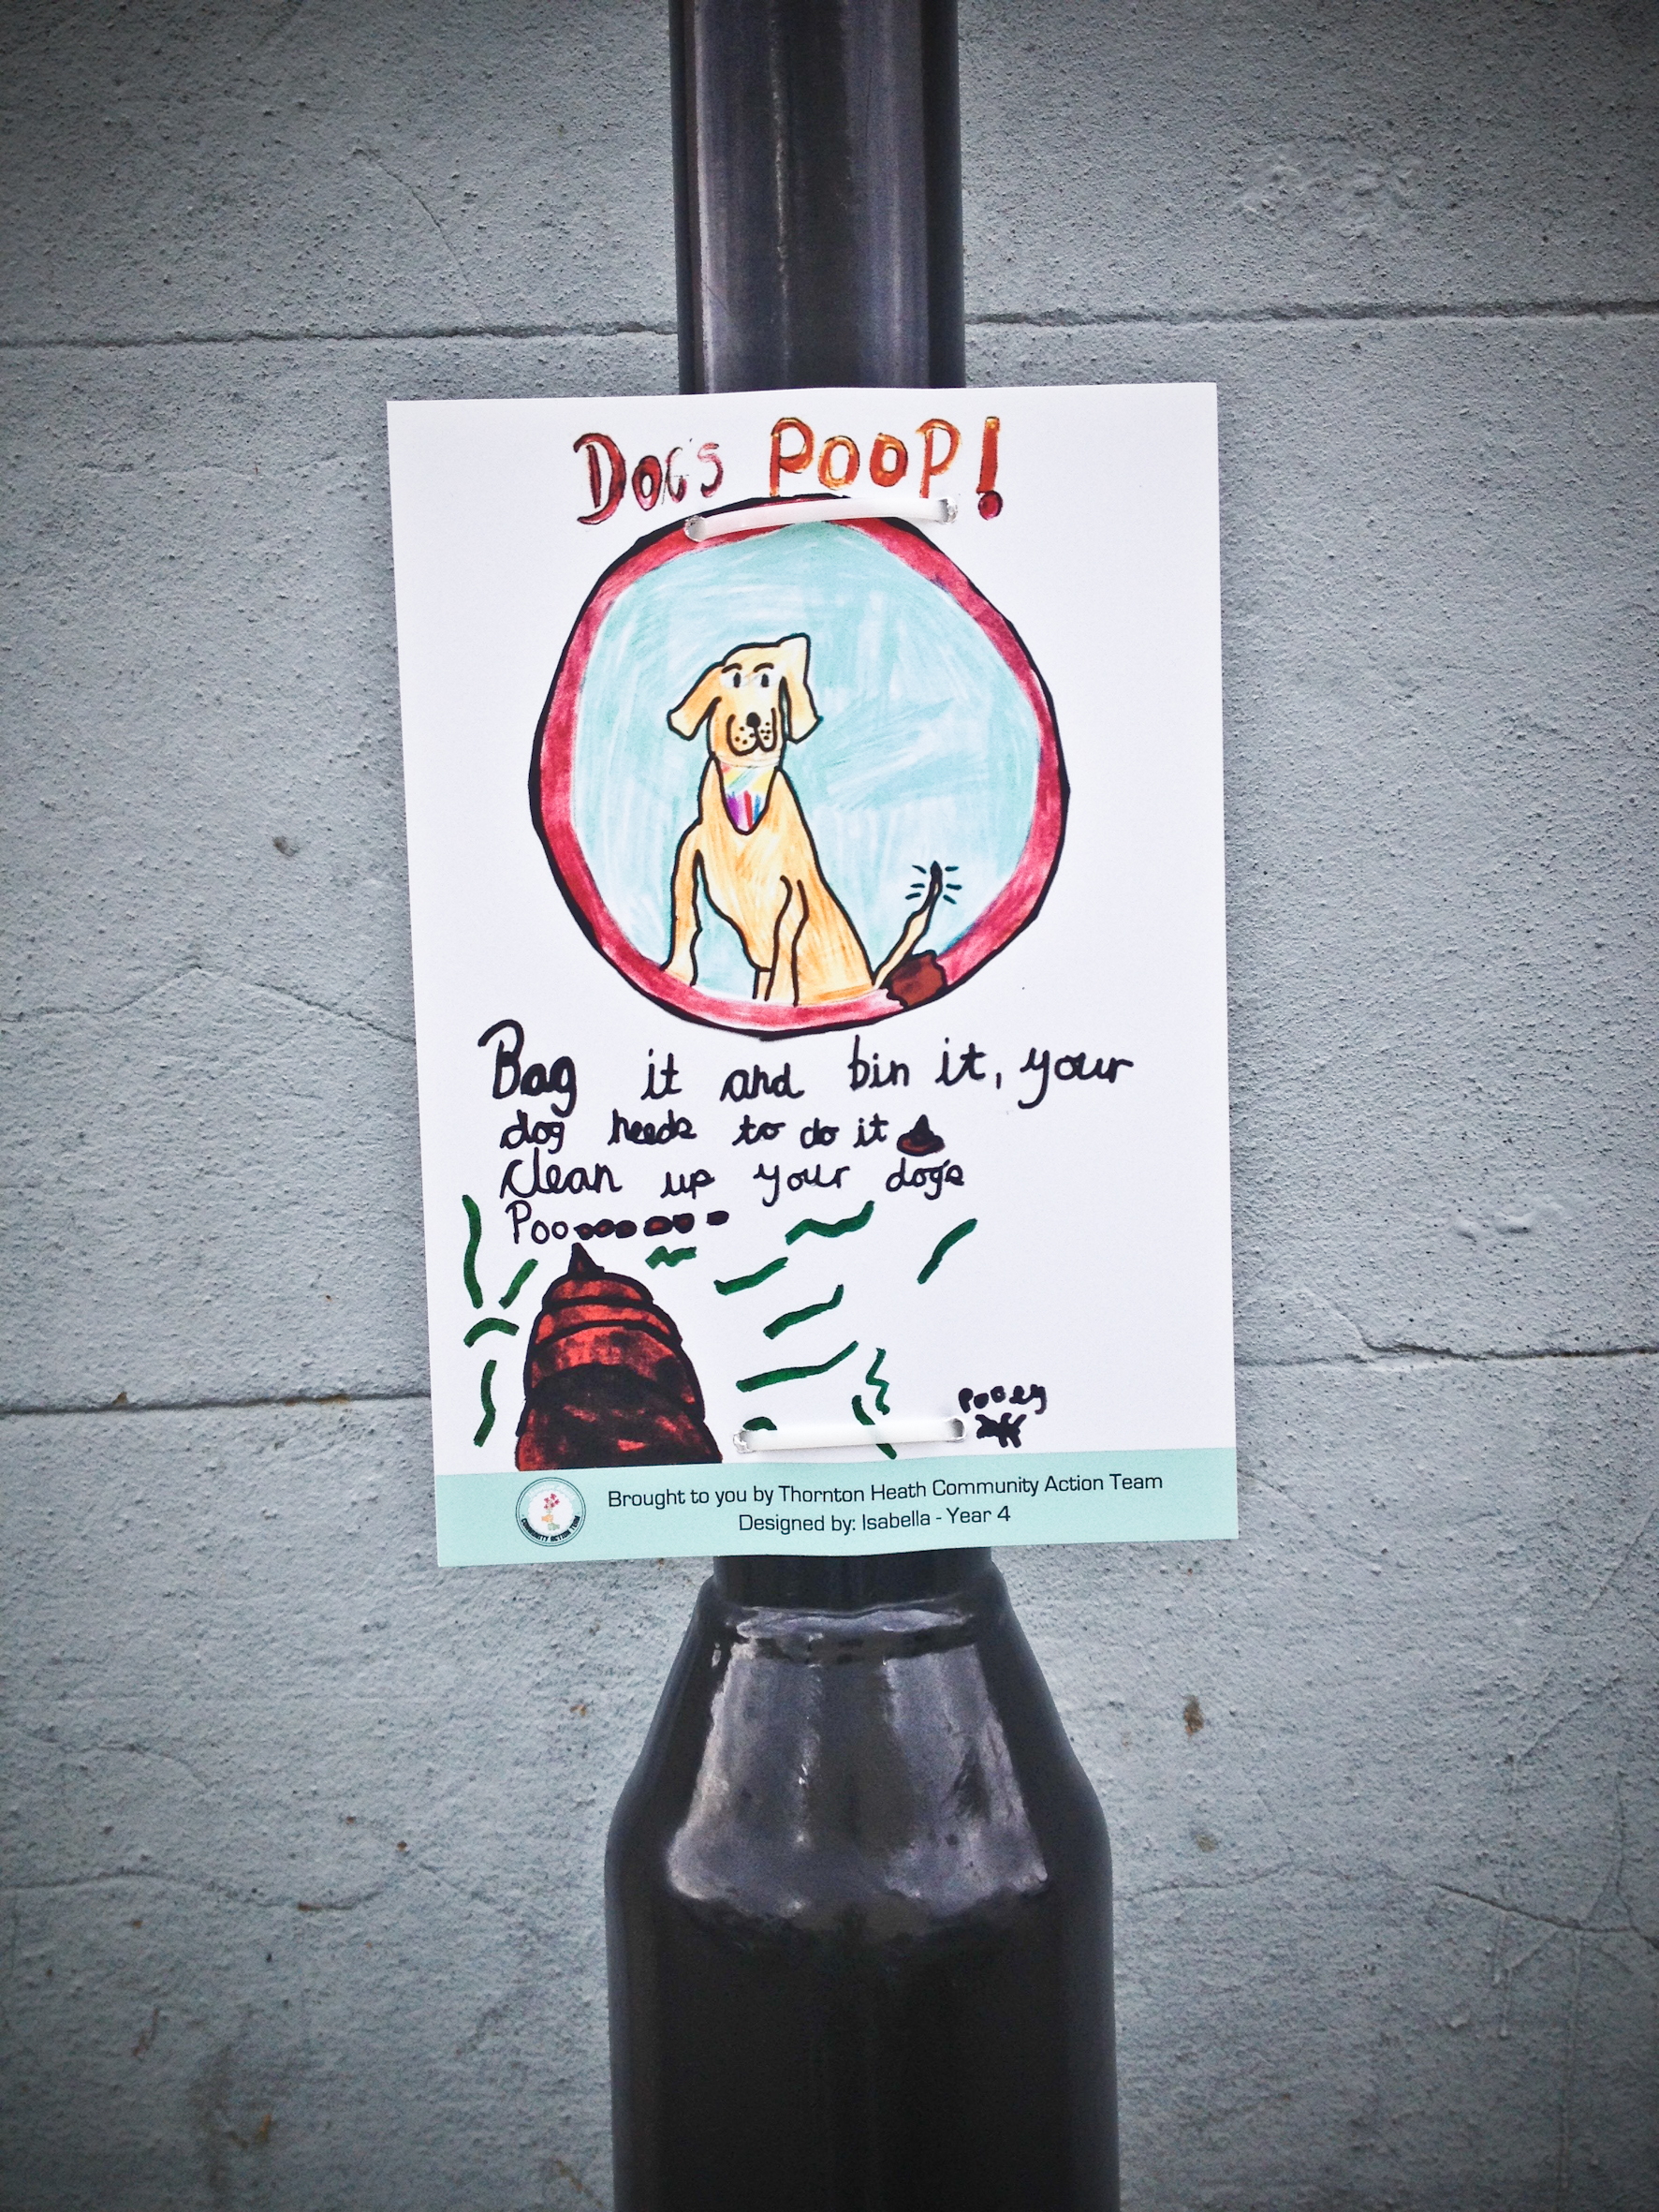 DOG'S POOP!
Bag it and bin it, your
dog needs to do it
Clean up your dog's
Poooooooo
pooey
Brought to you by Thornton Heath Community Action Team
Designed by: Isabella - Year 4
COMMUNITY ACTION TEAM